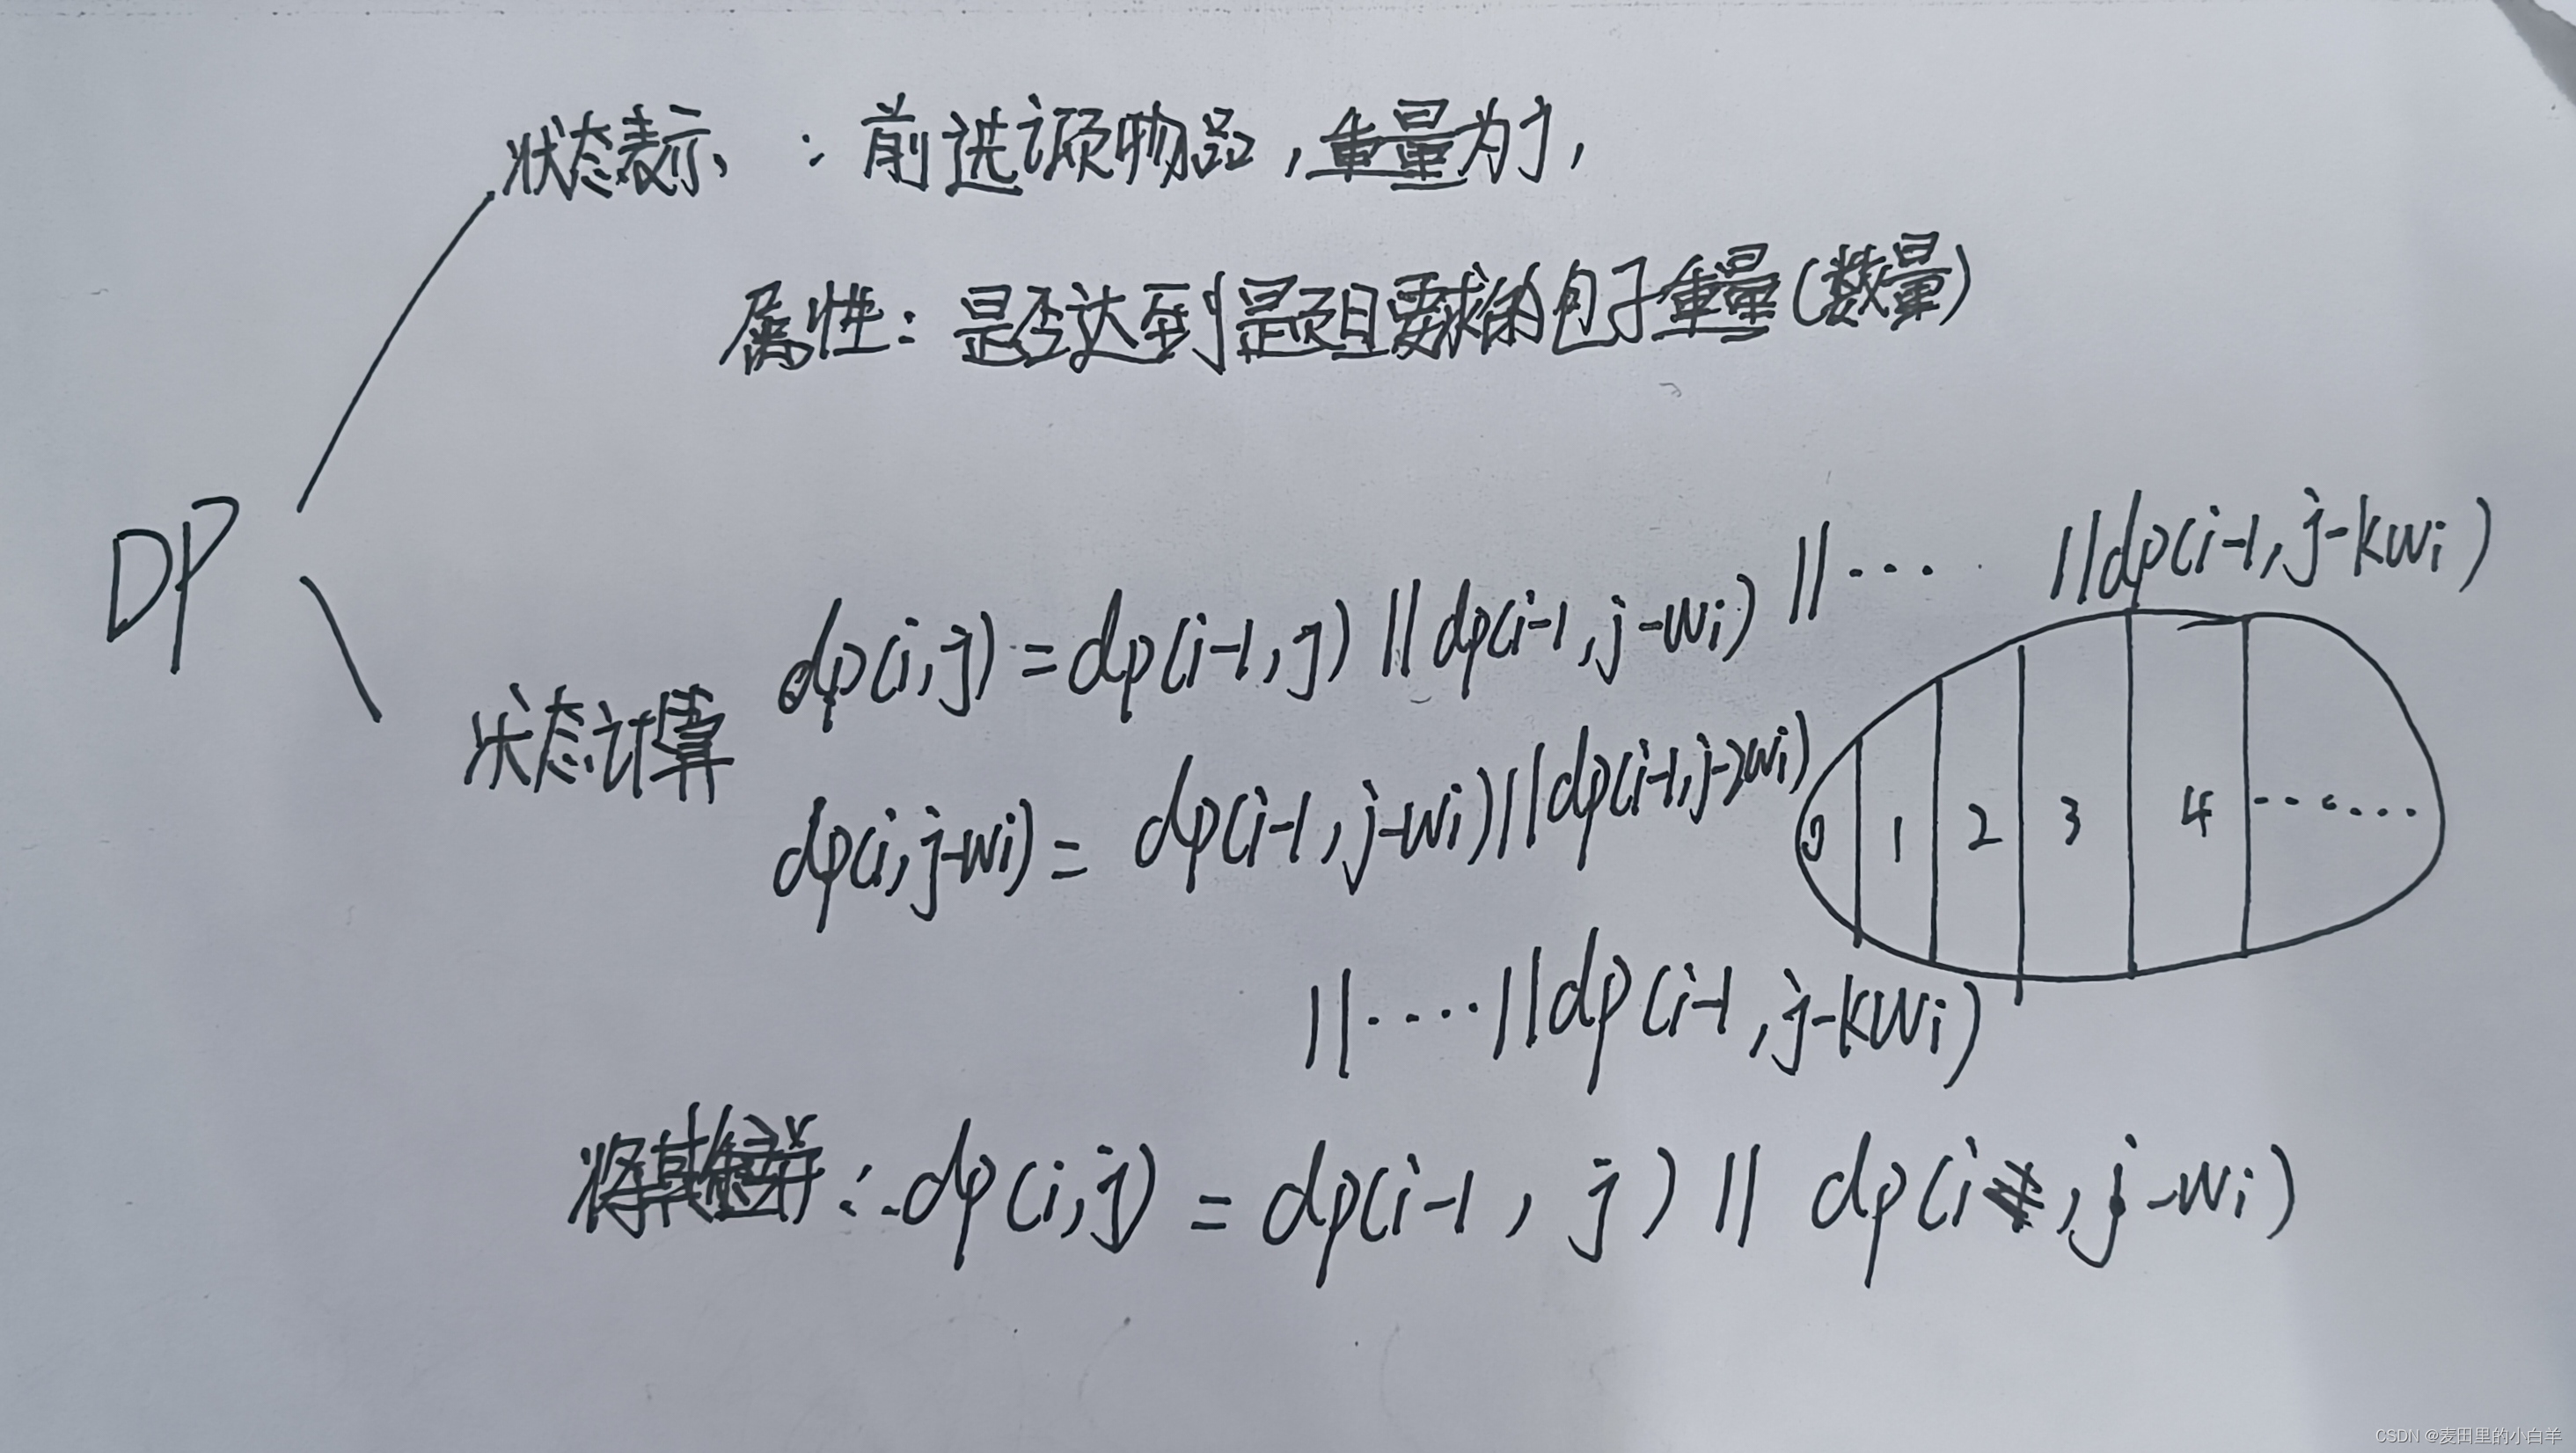 状态表示：前选i项物品，重量为j，
属性：是否达到是题目要求的包子重量(数量)
DP
dp(i,j)=dp(i-1,j)||dp(i-1,j-wi)||.... ||dp(i-1,j-kwi)
状态计算
dp(i,j-wi)= dp(i-1,j-wi)||dp(i-1,j-2wi)
0 1 2 3 4 .......
||....||dp(i-1,j-kwi)
将其合并∴dp(i,j) = dp(i-1,j)|| dp(i,j-wi)
CSDN @麦田里的小白羊